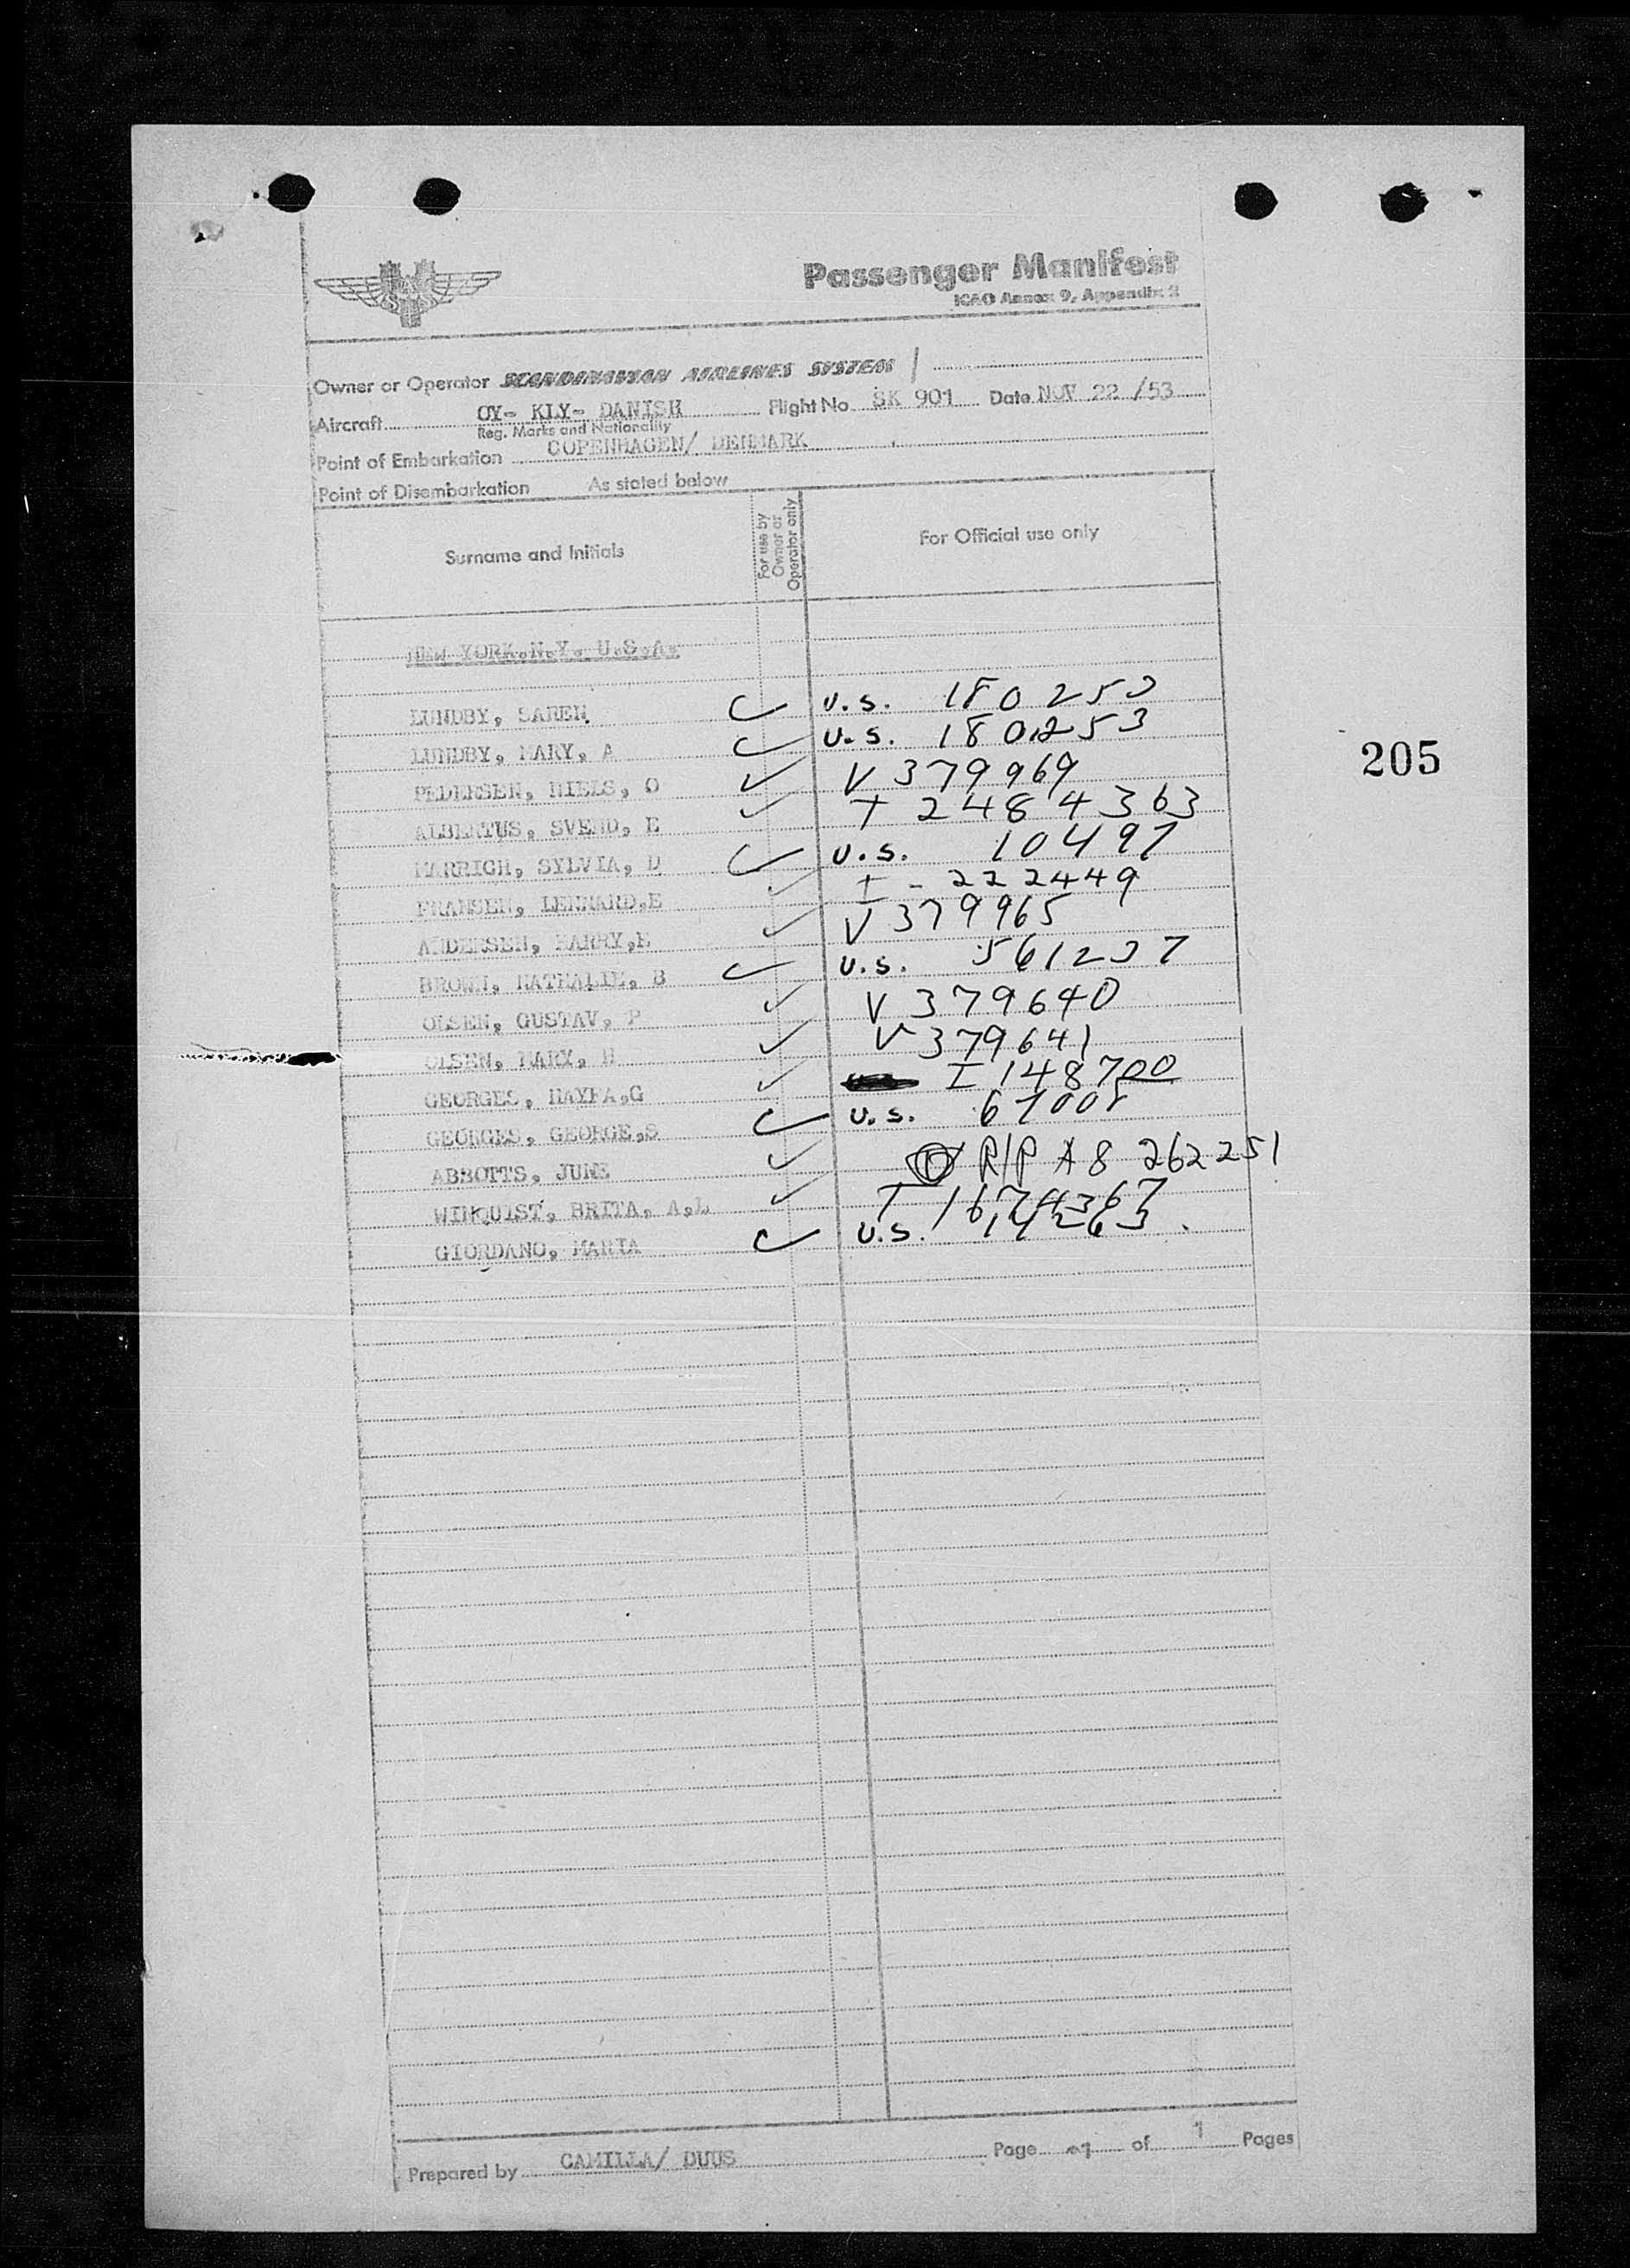 SAS
Passenger Manifest
ICAO Annex 9, Appendix 2
Owner or Operator SCANDINAVIAN AIRLINES SYSTEM
Aircraft OY- KLY- DANISH Flight No SK 901 Date NOV 22 /53
Reg. Marks and Nationality
Point of Embarkation COPENHAGEN/ DENMARK
Point of Disembarkation As stated below
Surname and Initials For use by Owner or Operator only For Official use only
NEW YORK.N.Y. U.S.A.
LUNDBY, SAREN. U.S. 180253
LUNDBY, MARY, A U.S. 180253
205
PEDERSEN, NIELS, O V 379969
ALBERTUS, SVEND, E T 2484363
MARRICH, SYLVIA, D U.S. 10497
FRANSEN, LENNARD,E I - 222449
ANDERSEN, HARRY,E V 379965
BROWN, NATHALIE, B U.S. 561237
OLSEN, GUSTAV, P V 379640
OLSEN, MARY, H V 379641
GEORGES, HAYFA,G I 148700
GEORGES, GEORGE,S U.S.
ABBOTTS, JUNE R/P A8 262251
WINQUIST, BRITA, A,L T 1674367
GIORDANO, MARIA U.S. 14263
Prepared by CAMILLA/ DUUS Page 1 of 1 Pages